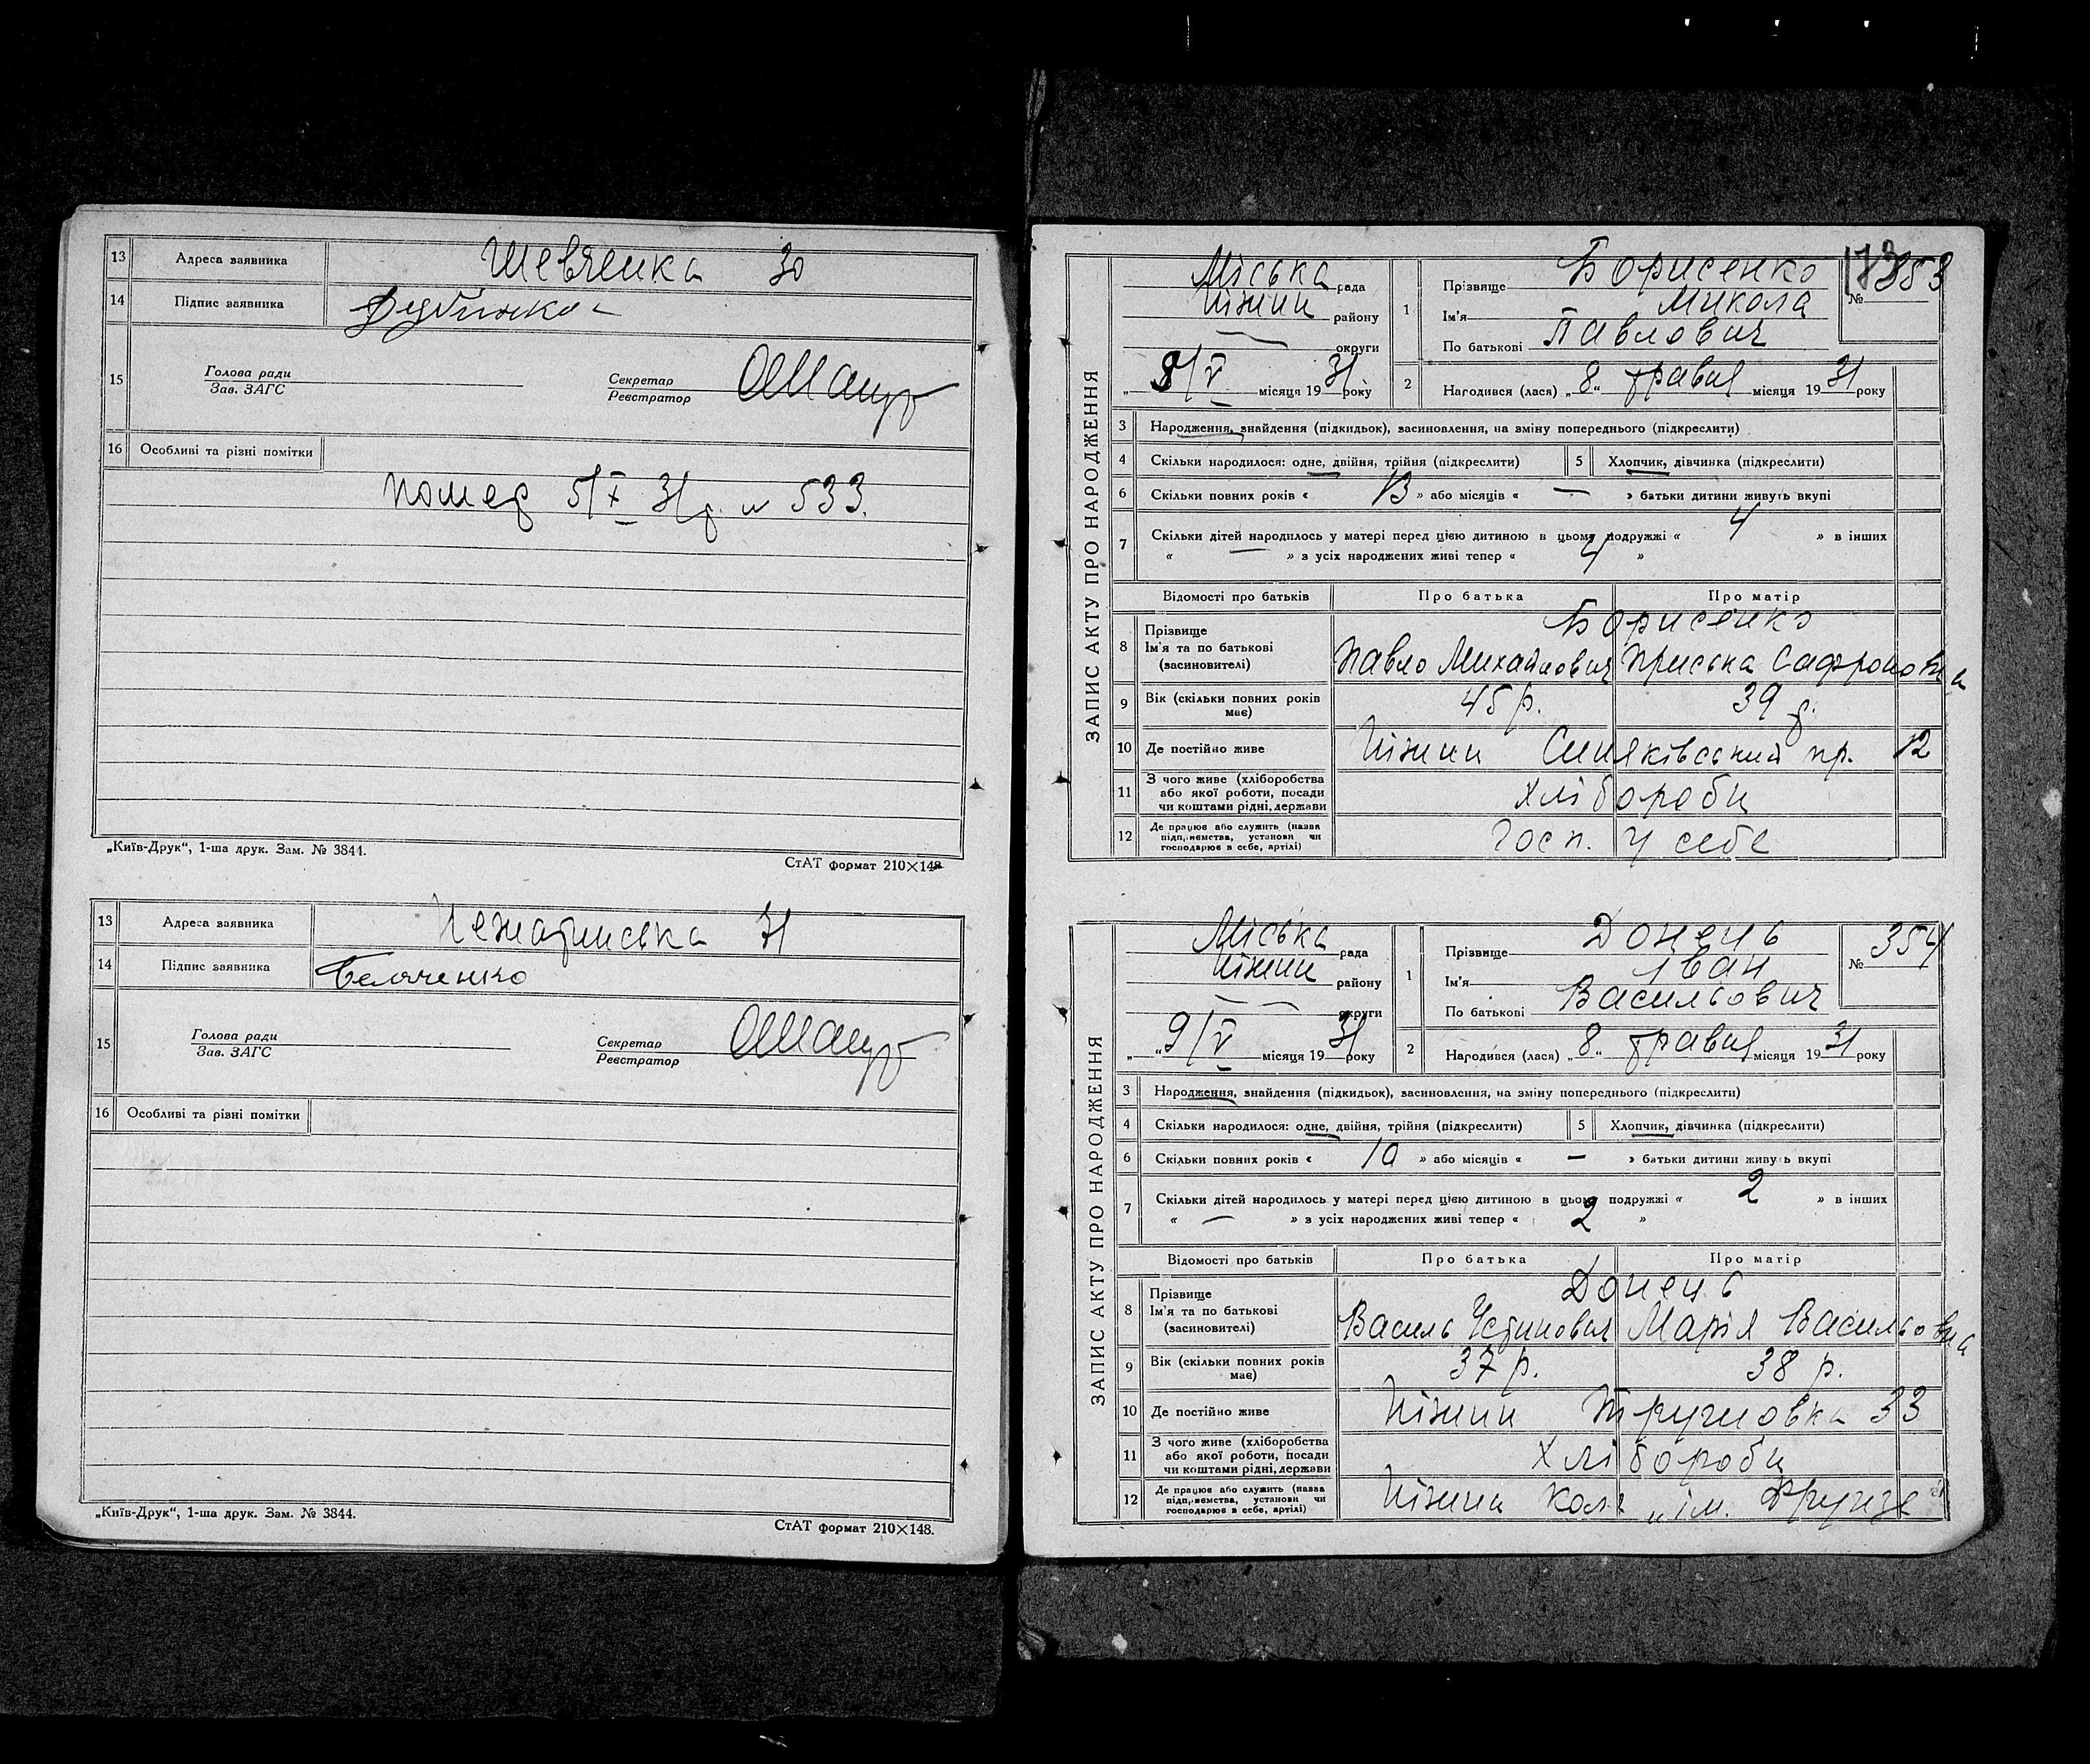 13 Адреса заявника Шевченка 30
14 Підпис заявника
15 Голова ради
Зав. ЗАГС
Секретар
Реєстратор
16 Особливі та різні помітки
помер 5/X 31 р. № 533.
„Київ-Друк“, 1-ша друк. Зам. № 3844.
СтАТ формат 210×148
13 Адреса заявника 31
14 Підпис заявника
15 Голова ради
Зав. ЗАГС
Секретар
Реєстратор
16 Особливі та різні помітки
„Київ-Друк“, 1-ша друк. Зам. № 3844.
СтАТ формат 210×148.
ЗАПИС АКТУ ПРО НАРОДЖЕННЯ
Міська рада
Ніжин району
округи
„ 8/V місяця 1931 року
1 Прізвище Борисенко
Ім'я Микола
По батькові Павлович
№ 353
2 Народився (лася) „8“ травня місяця 1931 року
3 Народження, знайдення (підкидьок), засиновлення, на зміну попереднього (підкреслити)
4 Скільки народилося: одне, двійня, трійня (підкреслити) 5 Хлопчик, дівчинка (підкреслити)
6 Скільки повних років « 13 » або місяців « — » батьки дитини живуть вкупі
7 Скільки дітей народилось у матері перед цією дитиною в цьому подружжі « 4 » в інших
« — » з усіх народжених живі тепер « 4 »
Відомості про батьків Про батька Про матір
8 Прізвище Борисенко
Ім'я та по батькові Павло Михайлович Приська Сафроновна
(засиновителі)
9 Вік (скільки повних років має) 45 р. 39 р.
10 Де постійно живе Ніжин Синяківський пр. 12
11 З чого живе (хліборобства
або якої роботи, посади хлібороби
чи коштами рідні, держави
12 Де працює або служить (назва
підприємства, установи чи Госп. у себе
господарює в себе, артілі)
ЗАПИС АКТУ ПРО НАРОДЖЕННЯ
Міська рада
Ніжин району
округи
„ 9/V місяця 1931 року
1 Прізвище Донець
Ім'я Іван
По батькові Васильович
№ 354
2 Народився (лася) „8“ травня місяця 1931 року
3 Народження, знайдення (підкидьок), засиновлення, на зміну попереднього (підкреслити)
4 Скільки народилося: одне, двійня, трійня (підкреслити) 5 Хлопчик, дівчинка (підкреслити)
6 Скільки повних років « 10 » або місяців « — » батьки дитини живуть вкупі
7 Скільки дітей народилось у матері перед цією дитиною в цьому подружжі « 2 » в інших
« — » з усіх народжених живі тепер « 2 »
Відомості про батьків Про батька Про матір
8 Прізвище Донець
Ім'я та по батькові Василь Устинович Марія Васильовна
(засиновителі)
9 Вік (скільки повних років має) 37 р. 38 р.
10 Де постійно живе Ніжин 33
11 З чого живе (хліборобства
або якої роботи, посади Хлібороби
чи коштами рідні, держави
12 Де працює або служить (назва
підприємства, установи чи Ніжин кол. „ім. Фрунзе“
господарює в себе, артілі)